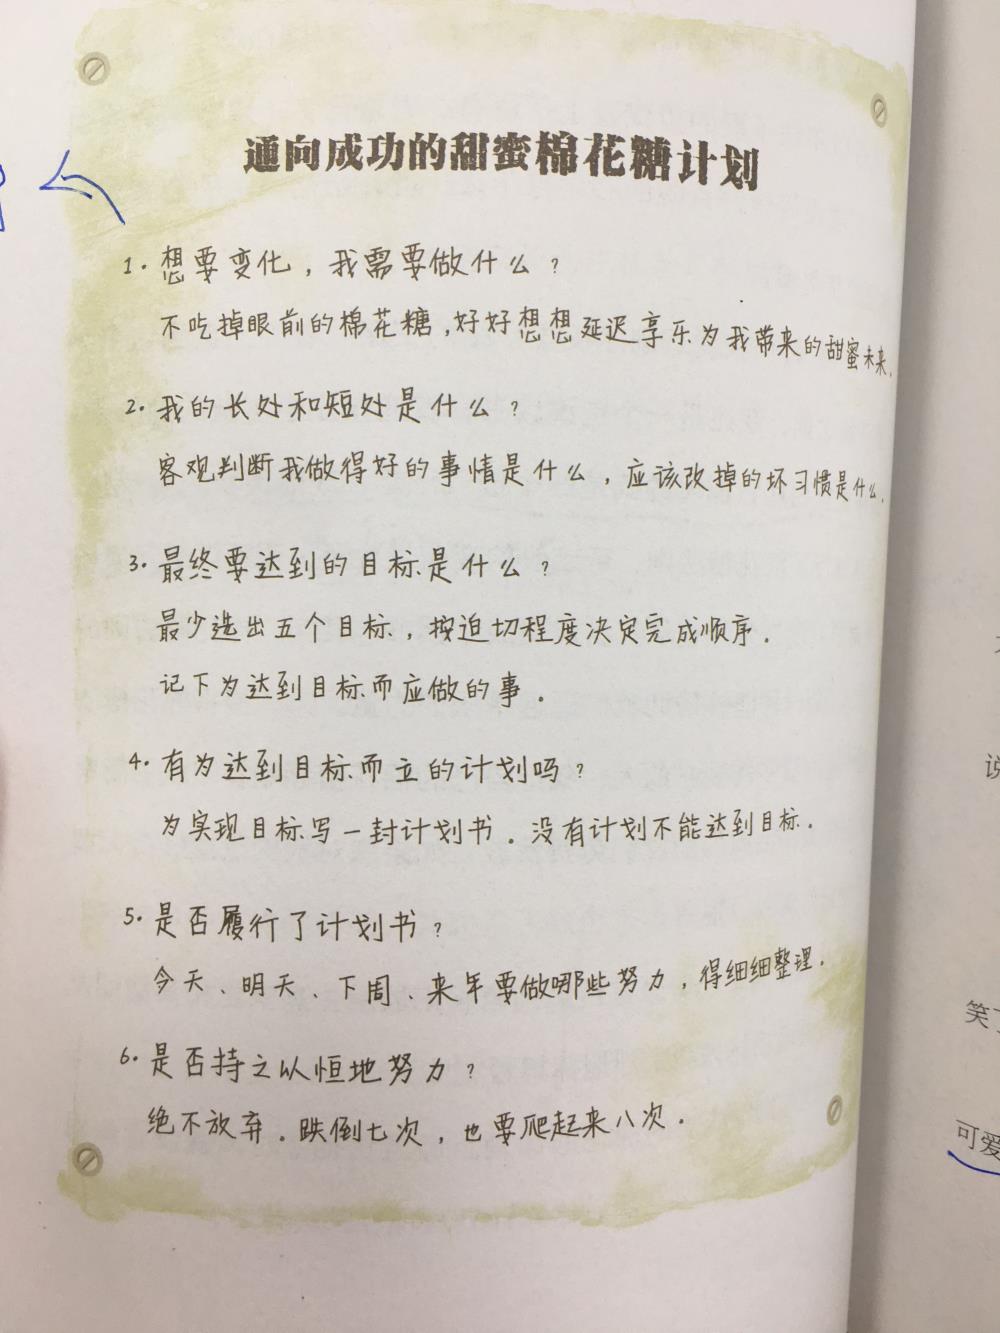 通向成功的甜蜜棉花糖计划
1. 想要变化，我需要做什么？
不吃掉眼前的棉花糖，好好想想延迟享乐为我带来的甜蜜未来.
2. 我的长处和短处是什么？
客观判断我做得好的事情是什么，应该改掉的坏习惯是什么.
3. 最终要达到的目标是什么？
最少选出五个目标，按迫切程度决定完成顺序.
记下为达到目标而应做的事.
4. 有为达到目标而立的计划吗？
为实现目标写一封计划书.没有计划不能达到目标.
5. 是否履行了计划书？
今天、明天、下周、来年要做哪些努力，得细细整理.
6. 是否持之以恒地努力？
绝不放弃.跌倒七次，也要爬起来八次.
说
笑了
可爱